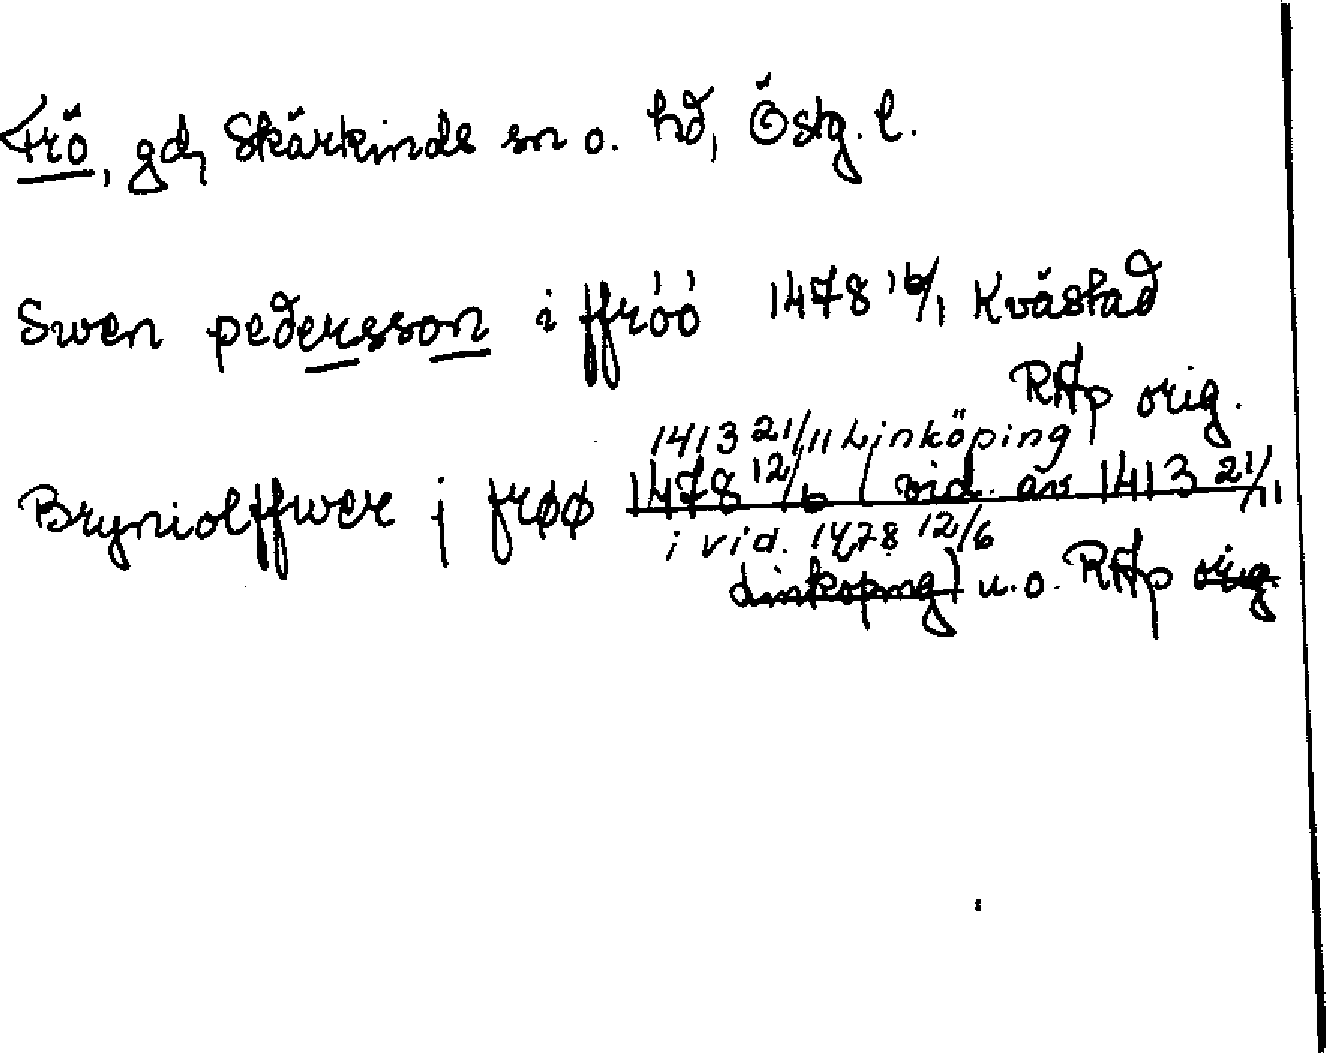 Frö, gd, Skärkinde sn o. hd, Östg. l.
Swen pedersson i ffróó 1478 16/1 Kvästad
RAp orig.
1413 21/11 Linköping
Bryniolffwer j frøø 1478 12/6 (vid. av 1413 21/11
i vid. 1478 12/6
Linköping) u.o. RAp orig.